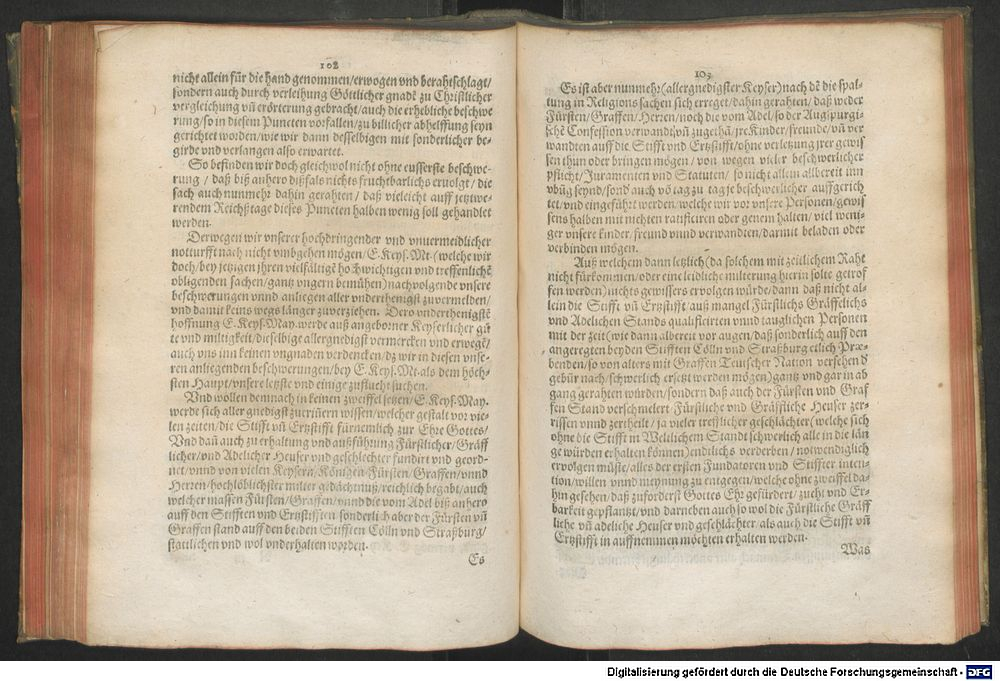 102
nicht allein für die hand genommen/erwogen vnd berahtschlagt/
sondern auch durch verleihung Göttlicher gnadẽ zu Christlicher
vergleichung vñ erörterung gebracht/auch die erhebliche beschwe
rung/so in diesem Puncten vorfallen/zu billicher abhelffung seyn
gerichtet worden/wie wir dann desselbigen mit sonderlicher be-
girde vnd verlangen also erwartet.
So befinden wir doch gleichwol nicht ohne eusserste beschwe-
rung / daß biß anhero dißfals nichts fruchtbarlichs eruolgt / die
sach auch nunmehr dahin gerahten / daß vieleicht auff jetztwe-
rendem Reichßtage dieses Puncten halben wenig soll gehandlet
werden.
Derwegen wir vnserer hochdringender vnd vnuermeidlicher
notturfft nach nicht vmbgehen mögen/E.Keys.Mt.(welche wir
doch/bey jetzigen jhren vielfältigẽ hochwichtigen vnd treffenlichẽ
obligenden sachen/gantz vngern bemühen)nachvolgende vnsere
beschwerungen vnnd anliegen aller vnderthenigst zuvermelden/
vnd damit keins wegs länger zuverziehen. Dero vnderthenigstẽ
hoffnung E.Keys.May.werde auß angeborner Keyserlicher gü
te vnd miltigkeit/dieselbige allergnedigst vermercken vnd erwegẽ/
auch vns inn keinen vngnaden verdencken/dz wir in diesen vnse-
ren anliegenden beschwerungen/bey E.Keys.Mt.als dem höch-
sten Haupt/vnsere letzste vnd einige zuflucht suchen.
Vnd wollen demnach in keinen zweiffel setzen/E.Keys.May.
werde sich aller gnedigst zuerinnern wissen/welcher gestalt vor vie-
len zeiten/die Stifft vñ Ertzstifft fürnemlich zur Ehre Gottes/
Vnd dañ auch zu erhaltung vnd außführung Fürstlicher/Gräff
licher/vnd Adelicher Heuser vnd geschlechter fundirt vnd geord-
net/vnnd von vielen Keysern/Königen/Fürsten/Graffen/vnnd
Herren/hochlöblichster milter gedächtnuß/reichlich begabt/auch
welcher massen Fürsten/Graffen/vnnd die vom Adel biß anhero
auff den Stifften vnd Ertzstifften sonderlich aber der Fürsten vñ
Graffen stand auff den beiden Stifften Cölln vnd Straßburg/
stattlichen vnd wol vnderhalten worden.
Es
103
Es ist aber nunmehr(allergnedigster Keyser)nach dẽ die spal-
tung in Religions sachen sich erreget/dahin gerahten/daß weder
Fürsten/Graffen/Herren/noch die vom Adel/so der Augspurgi-
schẽ Confession verwandt/vñ zugethã/jre Kinder/freunde/vñ ver
wandten auff die Stifft vnd Ertzstifft/ohne verletzung jrer gewis
sen thun oder bringen mögen/von wegen vieler beschwerlicher
pflicht/Juramenten vnd Statuten/ so nicht allein allbereit inn
vbũg seynd/sond auch võ tag zu tag je beschwerlicher auffgerich
tet/vnd eingeführt werden/welche wir vor vnsere Personen/gewis
sens halben mit nichten ratificieren oder genem halten/ viel weni-
ger vnsere kinder/freund vnnd verwandten/darmit beladen oder
verbinden mögen.
Auß welchem dann letzlich(da solchem mit zeitlichem Raht
nicht fürkommen/oder eine leidliche milterung hierin solte getrof
fen werden)nichts gewissers ervolgen würde/dann daß nicht al-
lein die Stifft vñ Ertzstifft/auß mangel Fürstlichs Gräffelichs
vnd Adelichen Stands qualificirten vnnd tauglichen Personen
mit der zeit(wie dann albereit vor augen/daß sonderlich auff den
angeregten beyden Stifften Cölln vnd Straßburg etlich Præ-
benden/so von alters mit Graffen Teutscher Nation versehen/d
gebür nach/schwerlich ersetzt werden mögen)gantz vnd gar in ab
gang gerahten würden/sondern daß auch der Fürsten vnd Graf
fen Stand verschmelert Fürstliche vnd Gräffliche Heuser zer-
rissen vnnd zertheilt/ja vieler trefflicher geschlächter(welche sich
ohne die Stifft in Weltlichem Standt schwerlich alle in die län
ge würden erhalten können)endtlichs verderben/notwendiglich
ervolgen müste/alles der ersten Fundatoren vnd Stiffter inten-
tion/willen vnnd meynung zu entgegen/welche ohne zweiffel da-
hin gesehen/daß zuforderst Gottes Ehr gefürdert/zucht vnd Er-
barkeit gepflantzt/vnd darneben auch so wol die Fürstliche Gräff
liche vñ adeliche Heuser vnd geschlächter/als auch die Stifft vñ
Ertzstifft in auffnemmen möchten erhalten werden.
Was
Digitalisierung gefördert durch die Deutsche Forschungsgemeinschaft - DFG